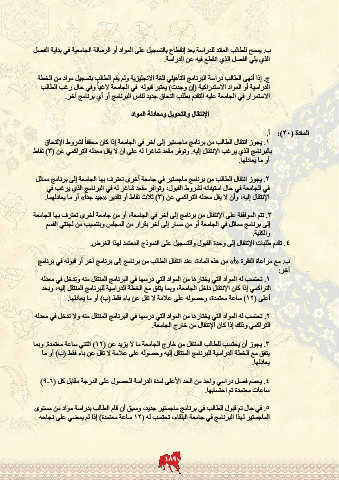 ب. يسمح للطالب العائد للدراسة بعد إنقطاع بالتسجيل على المواد أو الرسالة الجامعية في بداية الفصل
الذي يلي الفصل الذي انقطع فيه عن الدراسة.
ج. إذا أنهى الطالب دراسة البرنامج التأهيلي للغة الانجليزية ولم يقم الطالب بتسجيل مواد من الخطة
الدراسية أو المواد الاستدراكية (إن وجدت) يعتبر قبوله في الجامعة لاغياً وفي حال رغب الطالب
الاستمرار في الجامعة عليه التقدم بطلب التحاق جديد لنفس البرنامج أو أي برنامج آخر.
الإنتقال والتحويل ومعادلة المواد
المادة (٢٠): أ.
١. يجوز انتقال الطالب من برنامج ماجستير إلى آخر في الجامعة إذا كان محققاً لشروط الإلتحاق
بالبرنامج الذي يرغب الإنتقال إليه، وتوفر مقعد شاغر له على ان لا يقل معدله التراكمي عن (٣) نقاط
أو ما يعادلها.
٢. يجوز انتقال الطالب من برنامج ماجستير في جامعة أخرى تعترف بها الجامعة إلى برنامج مماثل
في الجامعة في حال استيفائه لشروط القبول، وتوافر مقعد شاغر له في البرنامج الذي يرغب في
الإنتقال إليه، وأن لا يقل معدله التراكمي عن (٣) ثلاث نقاط أو تقدير «جيد جداً» أو ما يعادلهما.
٣. تتم الموافقة على الإنتقال من برنامج إلى آخر في الجامعة، أو من جامعة أخرى تعترف بها الجامعة
إلى برنامج مماثل في الجامعة أو من مسار إلى آخر بقرار من المجلس وبتنسيب من لجنتي القسم
والكلية.
٤. تقدم طلبات الإنتقال إلى وحدة القبول والتسجيل على النموذج المعتمد لهذا الغرض.
ب. مع مراعاة الفقرة «أ» من هذه المادة، عند انتقال الطالب من برنامج إلى برنامج آخر أو قبوله في برنامج
آخر:
١. تحتسب له المواد التي يختارها من المواد التي درسها في البرنامج المنتقل منه وتدخل في معدله
التراكمي إذا كان الإنتقال داخل الجامعة، وبما يتفق مع الخطة الدراسية للبرنامج المنتقل إليه، وبحد
أعلى (١٢) ساعة معتمدة، وحصوله على علامة لا تقل عن باء فقط (ب) أو ما يعادلها.
٢. تحتسب له المواد التي يختارها من المواد التي درسها في البرنامج المنتقل منه ولا تدخل في معدله
التراكمي وذلك إذا كان الإنتقال من خارج الجامعة.
٣. يجوز أن يحتسب للطالب المنتقل من خارج الجامعة ما لا يزيد عن (١٢) اثنتي ساعة معتمدة وبما
يتفق مع الخطة الدراسية للبرنامج المنتقل إليه وحصوله على علامة لا تقل عن باء فقط (ب) أو ما
يعادلها.
٤. يحسم فصل دراسي واحد من الحد الأعلى لمدة الدراسة للحصول على الدرجة مقابل كل (٦-٩)
ساعات معتمدة تم احتسابها.
٥. في حال تم قبول الطالب في برنامج ماجستير جديد، وسبق أن قام الطالب بدراسة مواد من مستوى
الماجستير لهذا البرنامج في جامعة البلقاء، تحتسب له (١٢ ساعة معتمدة) إذا لم يمضي على نجاحه